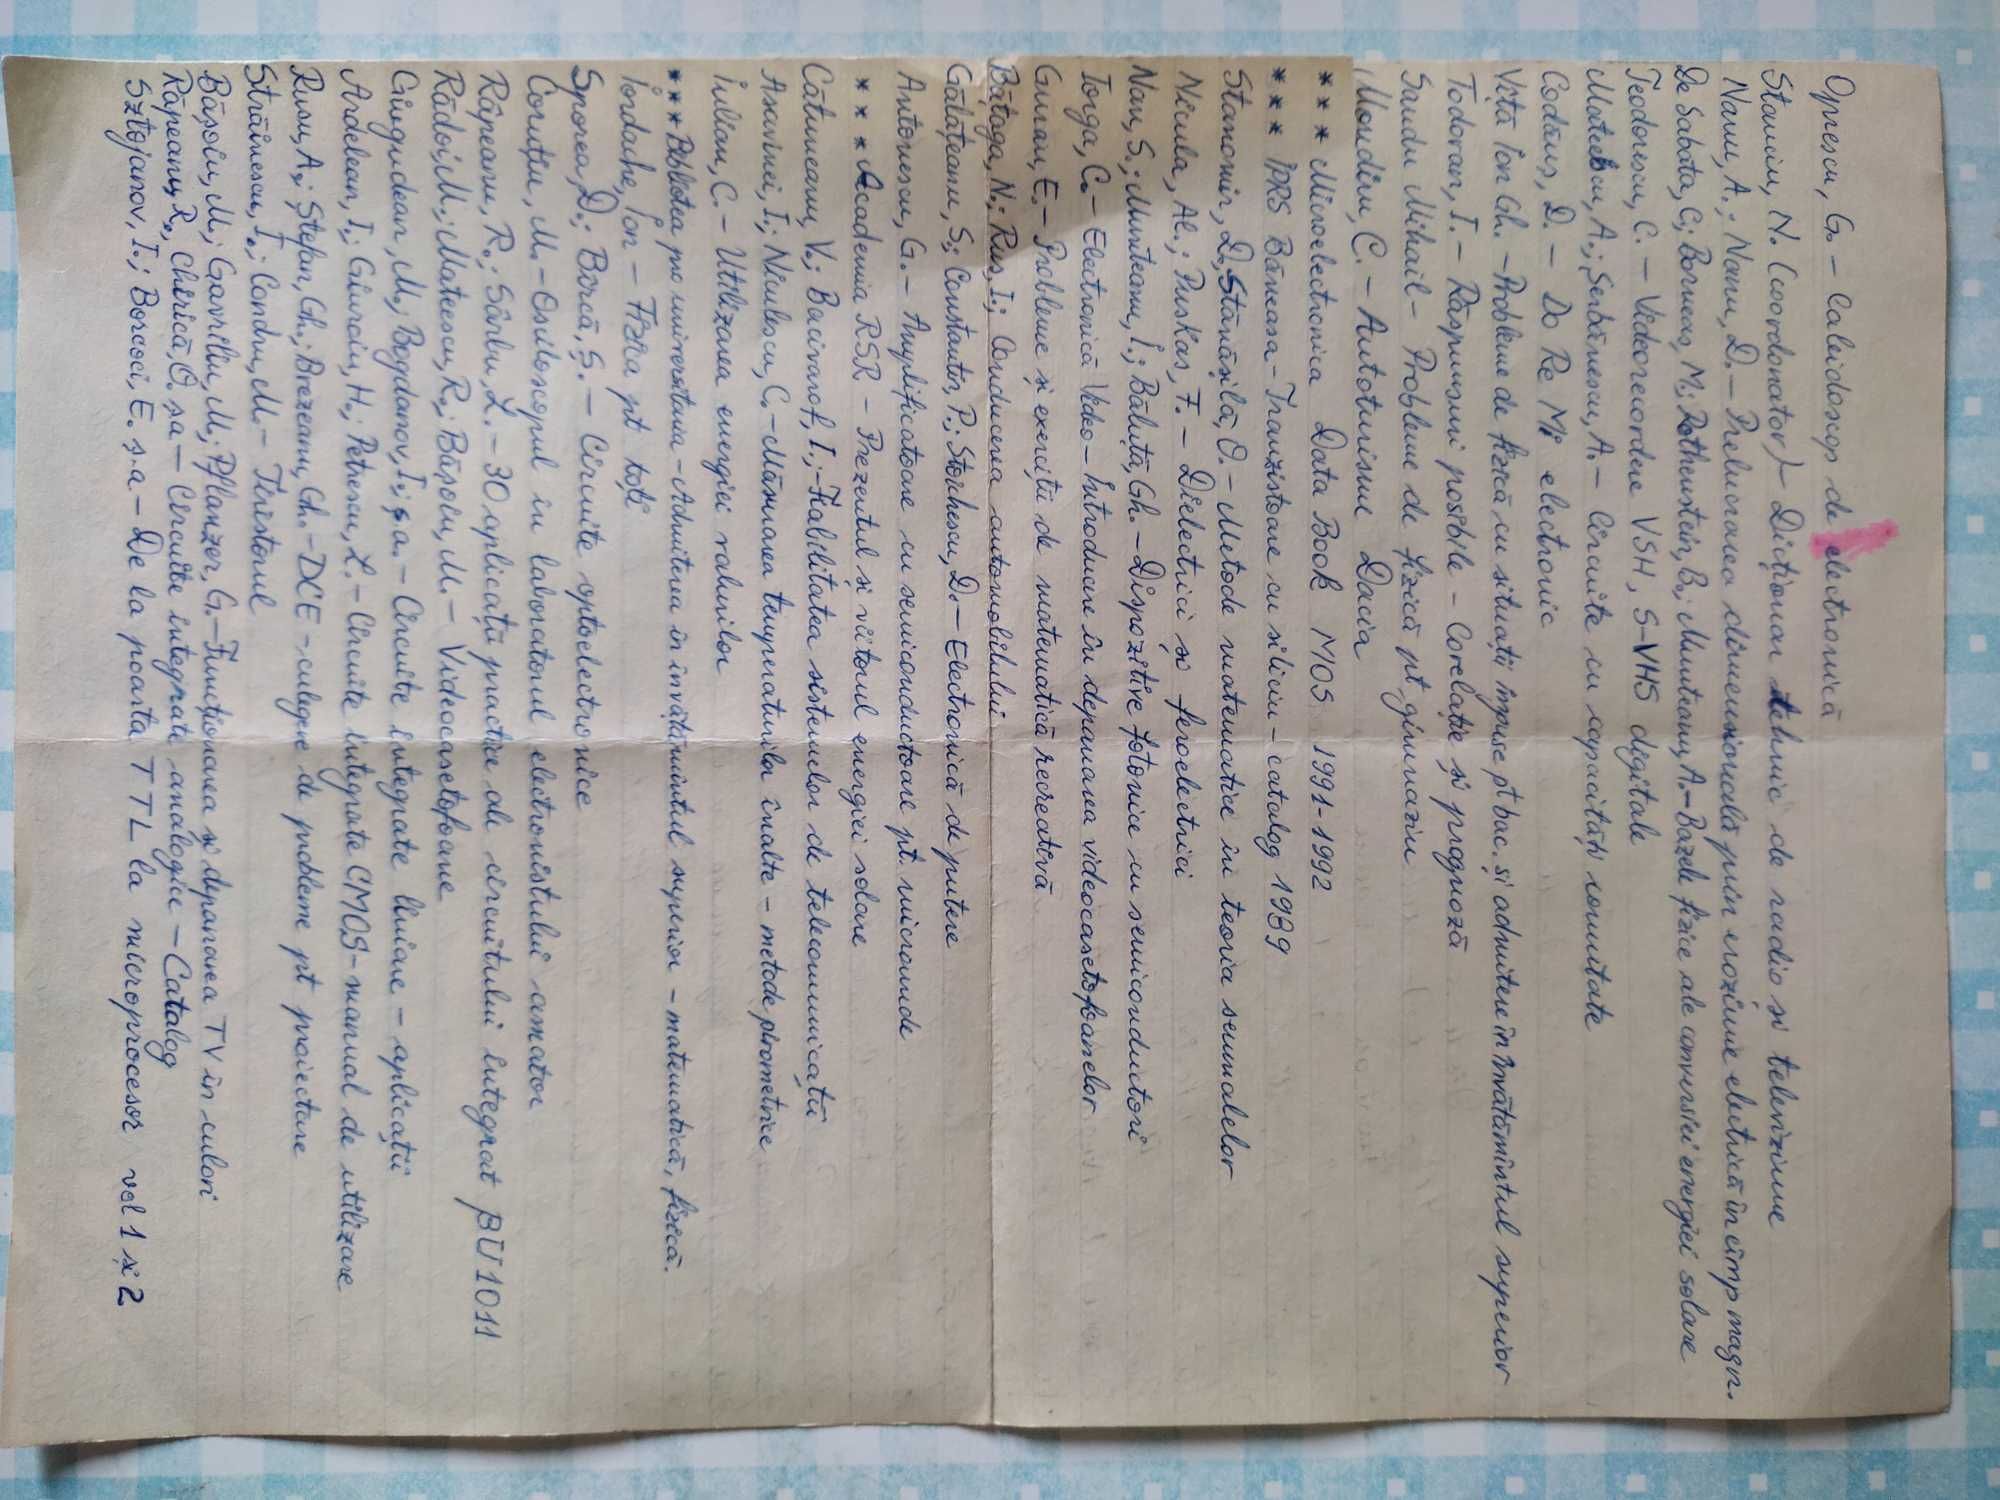 Oprescu, G. – Caleidoscop de electronică
Stanciu, N. (coordonator) – Dicționar tehnic de radio și televiziune
Nanu, A.; Nanu, D. – Prelucrarea dimensională prin eroziune electrică în cîmp magn.
De Sabata, C; Borneas, M; Rothenstein, B; Munteanu, A. – Bazele fizice ale conversiei energiei solare
Teodorescu, C. – Videorecordere VSH, S-VHS digitale
Mateescu, A.; Șerbănescu, A. – Circuite cu capacități comutate
Codăus, D. – Do Re Mi electronic
Viță Ion Gh. – Probleme de fizică cu situații impuse pt bac. și admitere în învățămîntul superior
Todoran, I. – Răspunsuri posibile – Corelație și prognoză
Sandu Mihail – Probleme de fizică pt gimnaziu
Mondiru, C. – Autoturisme Dacia
*** Microelectronica Data Book MOS 1991-1992
*** IPRS Băneasa – Tranzistoare cu siliciu – catalog 1989
Stanomir, D.; Stănășilă, O. – Metode matematice în teoria semnalelor
Nicula, Al.; Puskas, F. – Dielectrici și feroelectrici
Nan, S.; Munteanu, I.; Băluță, Gh. – Dispozitive fotonice cu semiconductori
Iorga, C. – Electronică Video – Introducere în depanarea videocasetofoanelor
Guran, E. – Probleme și exerciții de matematică recreativă
Bătoga, N.; Rus, I.; Conducerea automobilului
Gălățeanu, S.; Constantin, P.; Stoichescu, D. – Electronică de putere
Antonescu, G. – Amplificatoare cu semiconductoare pt. microunde
*** Academia RSR – Prezentul și viitorul energiei solare
Cătuneanu, V.; Bacivarof, I.; – Fiabilitatea sistemelor de telecomunicații
Asavinei, I; Niculescu, C. – Măsurarea temperaturilor înalte – metode pirometrice
Iulian, C. – Utilizarea energiei valurilor
*** Biblioteca pro universitaria – Admiterea în învățămîntul superior – matematică, fizică.
Iordache, Ion – Fizica pt toți
Sporea, D.; Bârcă, Ș. – Circuite optoelectronice
Coruțiu, M. – Osciloscopul în laboratorul electronistului amator
Râpeanu, R.; Sârbu, L. – 30 aplicații practice ale circuitului integrat βU1011
Rădoi, M.; Mateescu, R.; Bășoiu, M. – Videocasetofoane
Ciugudean, M.; Bogdanov, I.; șa – Circuite integrate liniare – aplicații
Ardelean, I.; Giuroiu, H.; Petrescu, L. – Circuite integrate CMOS – manual de utilizare
Rusu, A.; Ștefan, Gh.; Brezeanu, Gh. – DCE – culegere de probleme pt proiectare
Străinescu, I.; Condru, M. – Tiristorul
Bășoiu, M; Gavriliu, M; Pflanzer, G. – Funcționarea și depanarea TV în culori
Râpeanu, R., Chirică, O. șa – Circuite integrate analogice – Catalog
Sztojanov, I.; Borcoci, E. ș.a – De la poarta TTL la microprocesor vol 1 și 2